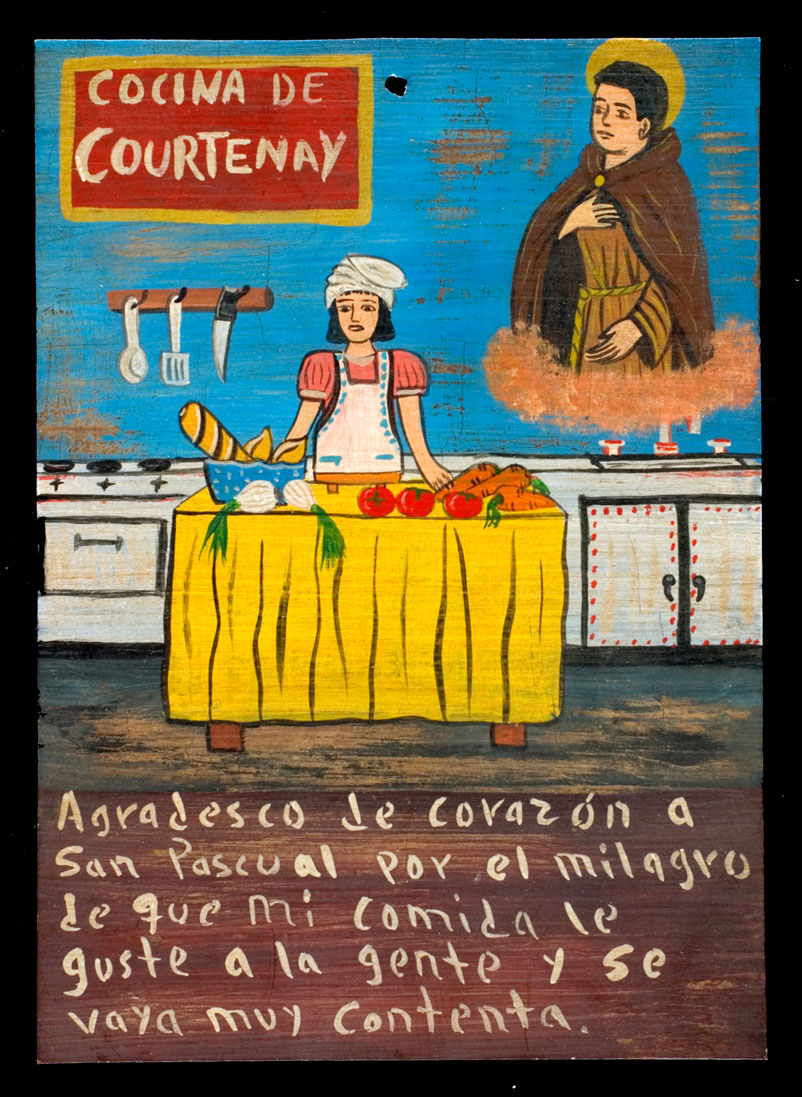 COCINA DE
COURTENAY
Agradesco de corazón a
San Pascual por el milagro
de que mi comida le
guste a la gente y se
vaya muy contenta.